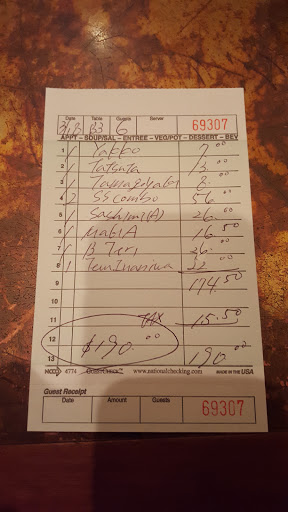 Date Table Guests Server
3/18 B3 6 69307
APPT – SOUP/SAL – ENTREE – VEG/POT – DESSERT – BEV
1 1 Yakko 7.00
2 1 Tatsuta 13.00
3 1 8.00
4 2 SS combo 56.00
5 1 Sashimi (A) 26.00
6 1 Maki A 16.50
7 1 B Teri 26.00
8 1 22.00
9 174.50
10
11 TAX 15.50
12 $190.00
13 190.00
4774 www.nationalchecking.com MADE IN THE USA
Guest Receipt
Date Amount Guests 69307